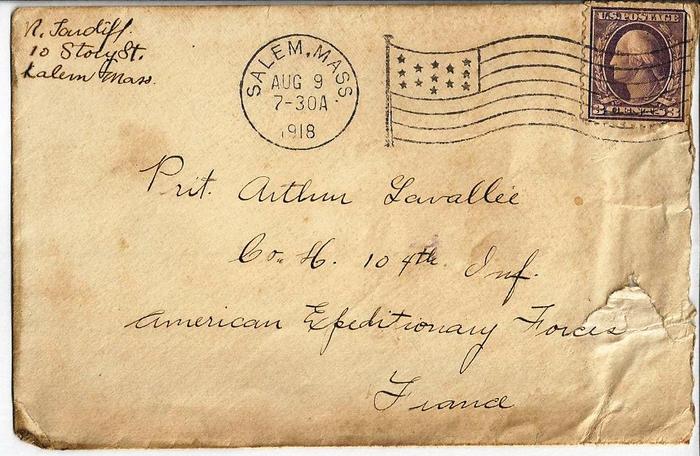 R. Tardiff.
10 Story St.
Salem Mass.
SALEM, MASS.
AUG 9
7-30A
1918
U.S. POSTAGE
3 CENTS 3
Prit. Arthur Lavallee
Co. H. 104th Inf.
American Epeditionary Forces
France